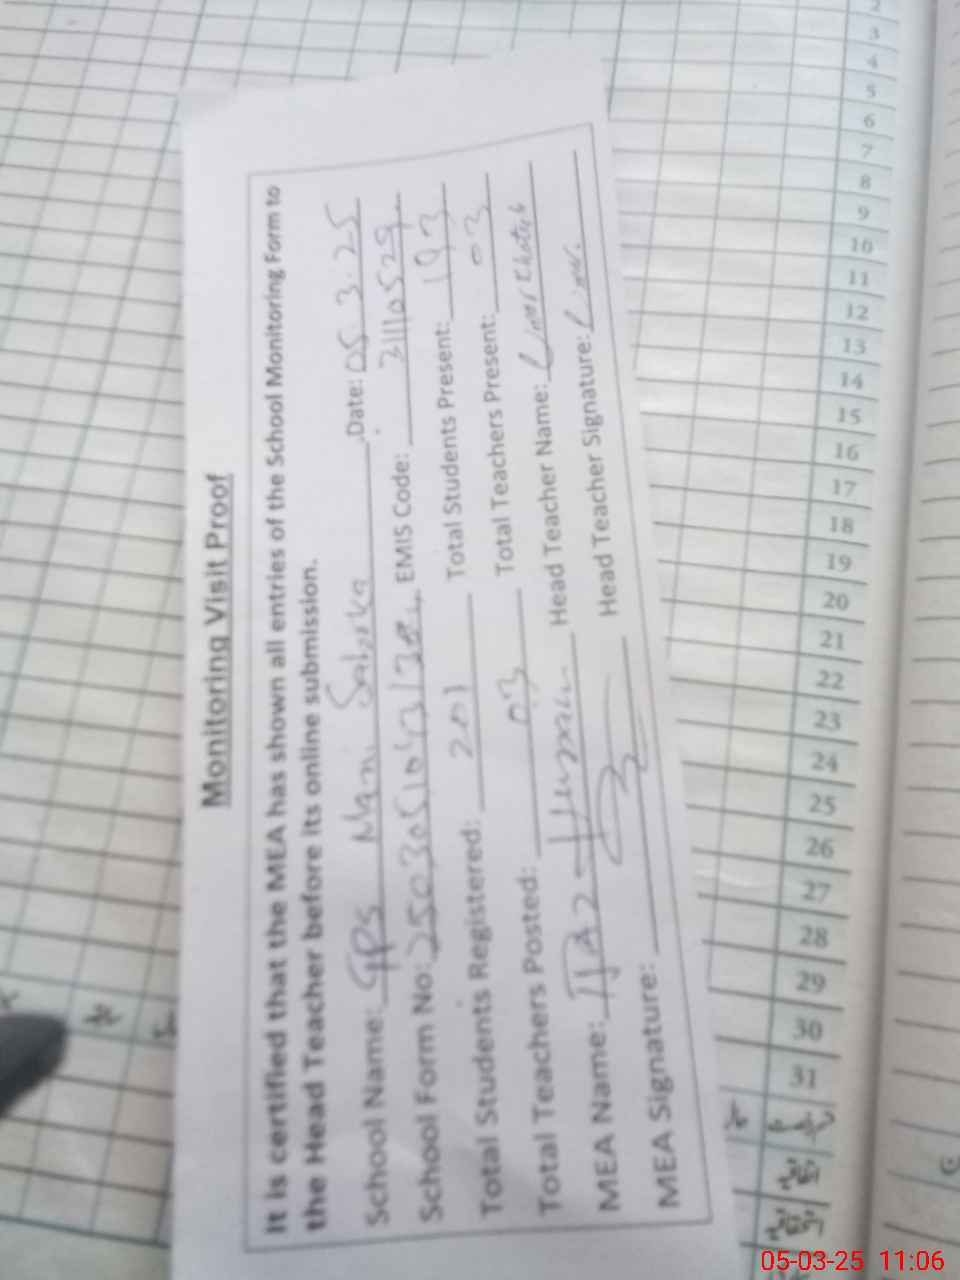 Monitoring Visit Proof
It is certified that the MEA has shown all entries of the School Monitoring Form to
the Head Teacher before its online submission.
School Name: GPS Mani Date: 05.3.25
School Form No: EMIS Code: 31110529
Total Students Registered: 201 Total Students Present: 193
Total Teachers Posted: 03 Total Teachers Present: 03
MEA Name: Head Teacher Name:
MEA Signature: Head Teacher Signature:
2
3
4
5
6
7
8
9
10
11
12
13
14
15
16
17
18
19
20
21
22
23
24
25
26
27
28
29
30
31
05-03-25 11:06